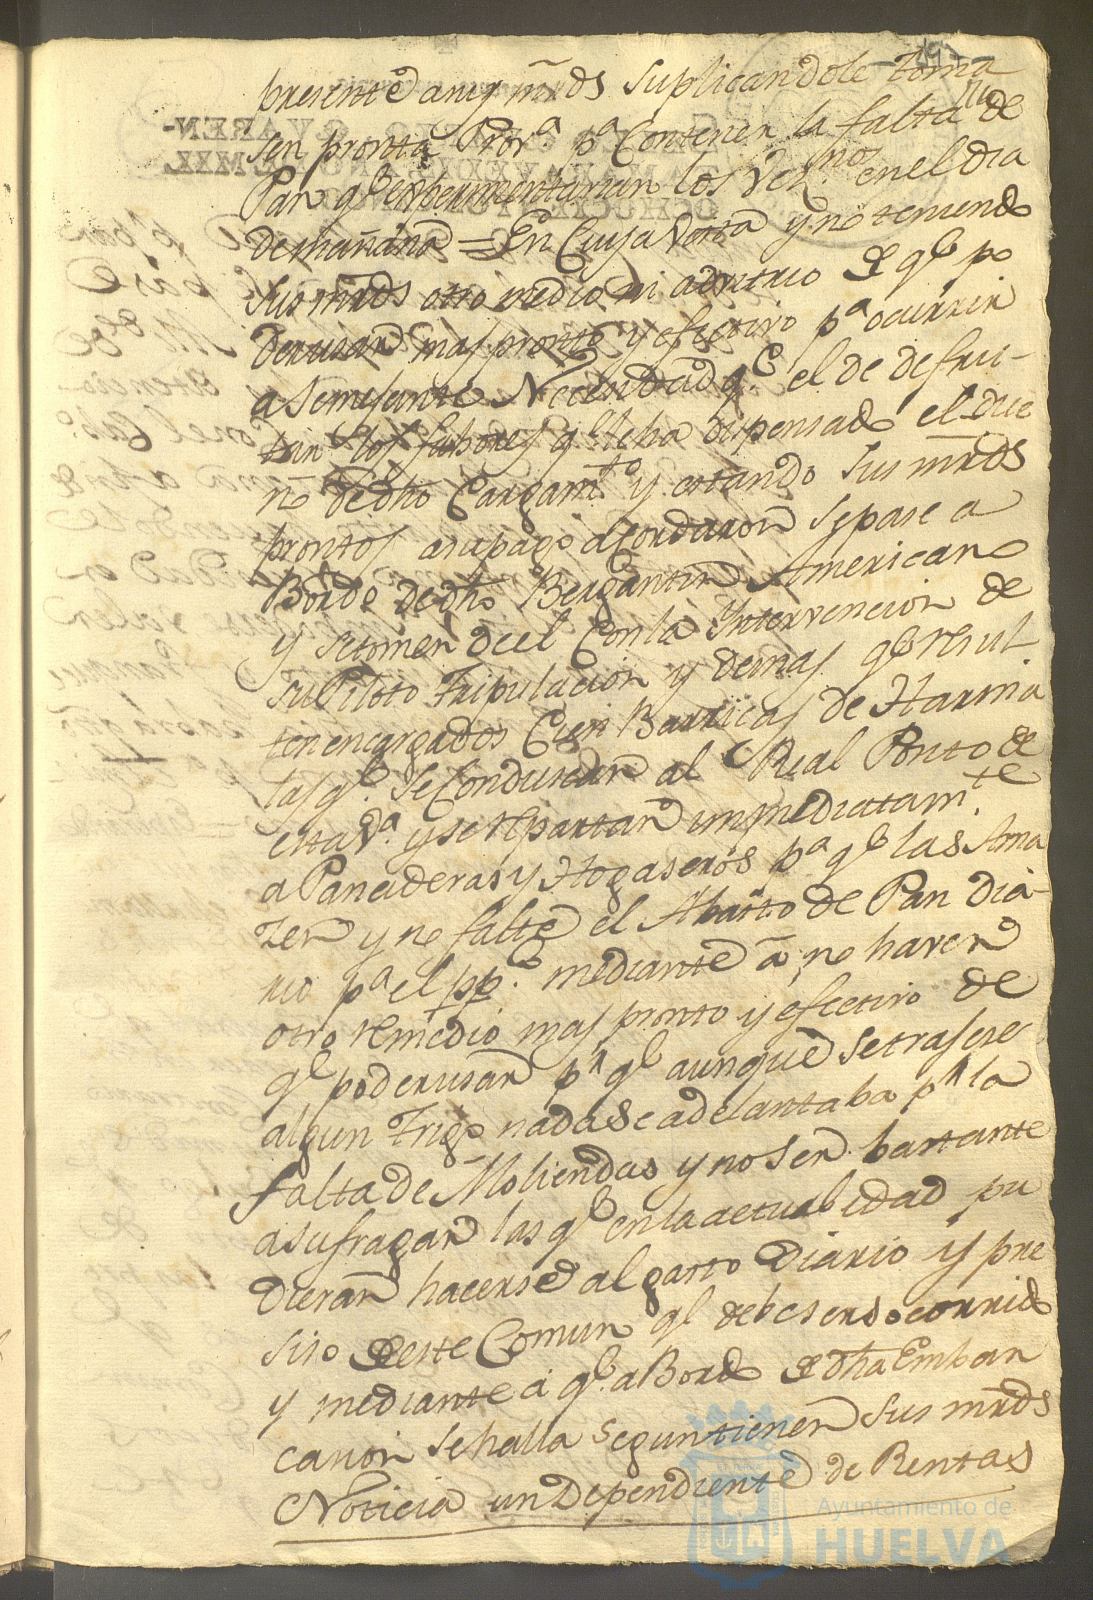 presente a unq mrds suplicandole toma
sen pronta Prov.ª pª Contener la falta de
Pan qᵉ experimentarian los Vez.ⁿᵒˢ en el dia
de mañana = En Cuya Vista y no teniendo
sus mrds otro medio ni adbitrio de qᵉ po
der usar mas pronto y efectivo pª ocurrir
a Semejante Necesidad q.ᵉ el de disfru-
tar los fabores qᵉ le ha dispensado el Due
ño de dho Cargam.ᵗᵒ y estando sus mrds
prontos a su pago acordaron se pase a
Bordo de dho Bergantin Americano
y se tomen de el Con la Yntervencion de
su Piloto Tripulacion y demas qᵉ resul
ten encargados Cien Barricas de Harina
las qᵉ. se Conduscan al Real Posito de
esta Vª. y se repartan ynmediatam.ᵗᵉ
a Panaderas y Hogaseros pª qᵉ las Ama
zen y no falte el Abasto de Pan Dia-
rio pª el pp.ᶜᵒ mediante a no haver
otro remedio mas pronto y efectivo de
qᵉ poder usar pʳ qᵉ aunque se trajese
algun Trigo nada se adelantaba pʳ la
falta de Moliendas y no ser bastante
a sufragar las qᵉ en la actualidad pu
dieran hacerse al gasto Diario y pre
siso de este Comun qᵉ debe ser socorrido
y mediante a qᵉ. a Bordo de dha Embar
cacion se halla segun tienen sus mrds
Noticia un Dependiente de Rentas
Ayuntamiento de
HUELVA